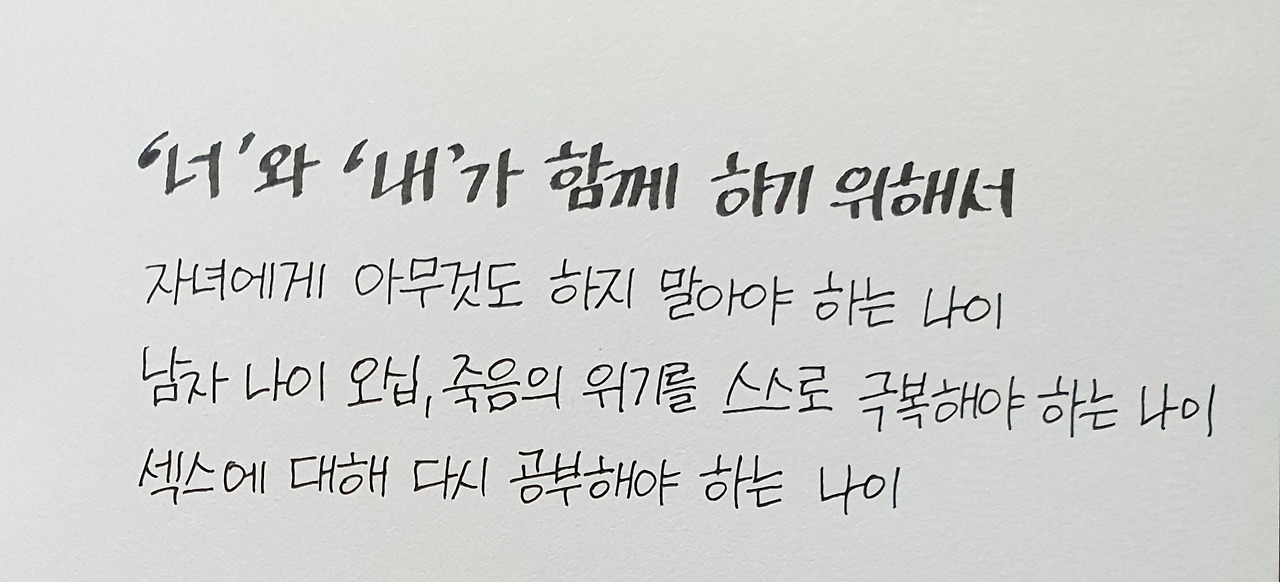 ‘너’와 ‘내’가 함께 하기 위해서
자녀에게 아무것도 하지 말아야 하는 나이
남자 나이 오십, 죽음의 위기를 스스로 극복해야 하는 나이
섹스에 대해 다시 공부해야 하는 나이